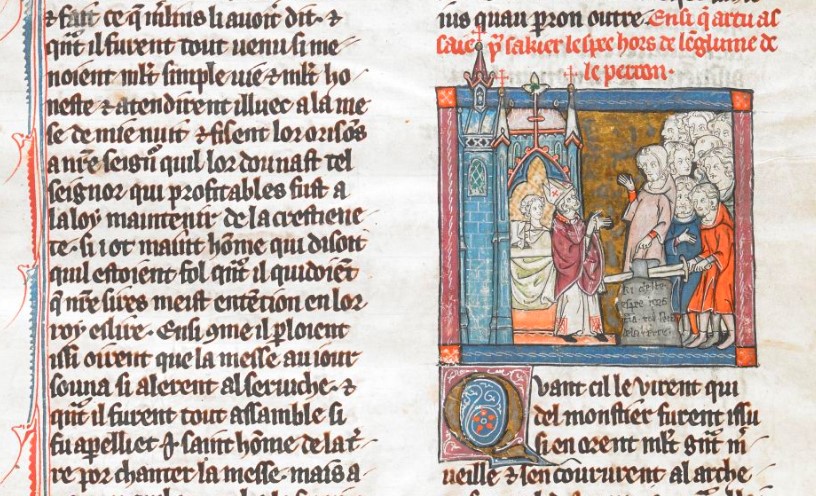 & fait ce q̃ m̃lins li auoit dit. &
q̃nt il furent tout uenu si me
noient ml̃t simple uie & ml̃t ho
neste & atendirent illuec a la me
se de mie nuit & fisent lor orisõs
a nr̃e seign̄ quil lor dounast tel
seignor qui profitables fust a
la loy maintenir de la crestiene
te. si i ot maint hõme qui disoit
quil estoient fol q̃nt il quidoiẽt
q̃ nr̃e sires meist entẽtion en lor
roy eslire. Ensi ꝯme il ploient
issi oirent que la messe au iour
souna si alerent al seruiche. &
q̃nt il furent tout assamble si
fu apelliet .j. saint hõme de la t̃
re por chanter la messe. mais a
ius quau pron outre. Ensi q̃ artu as
saie ꝑ sakier lespee hors de lẽglume de
le perron.
Qvant cil le virent qui
del monstier furent issu
si en orent ml̃t gñt m̃
ueille & sen coururent al arche